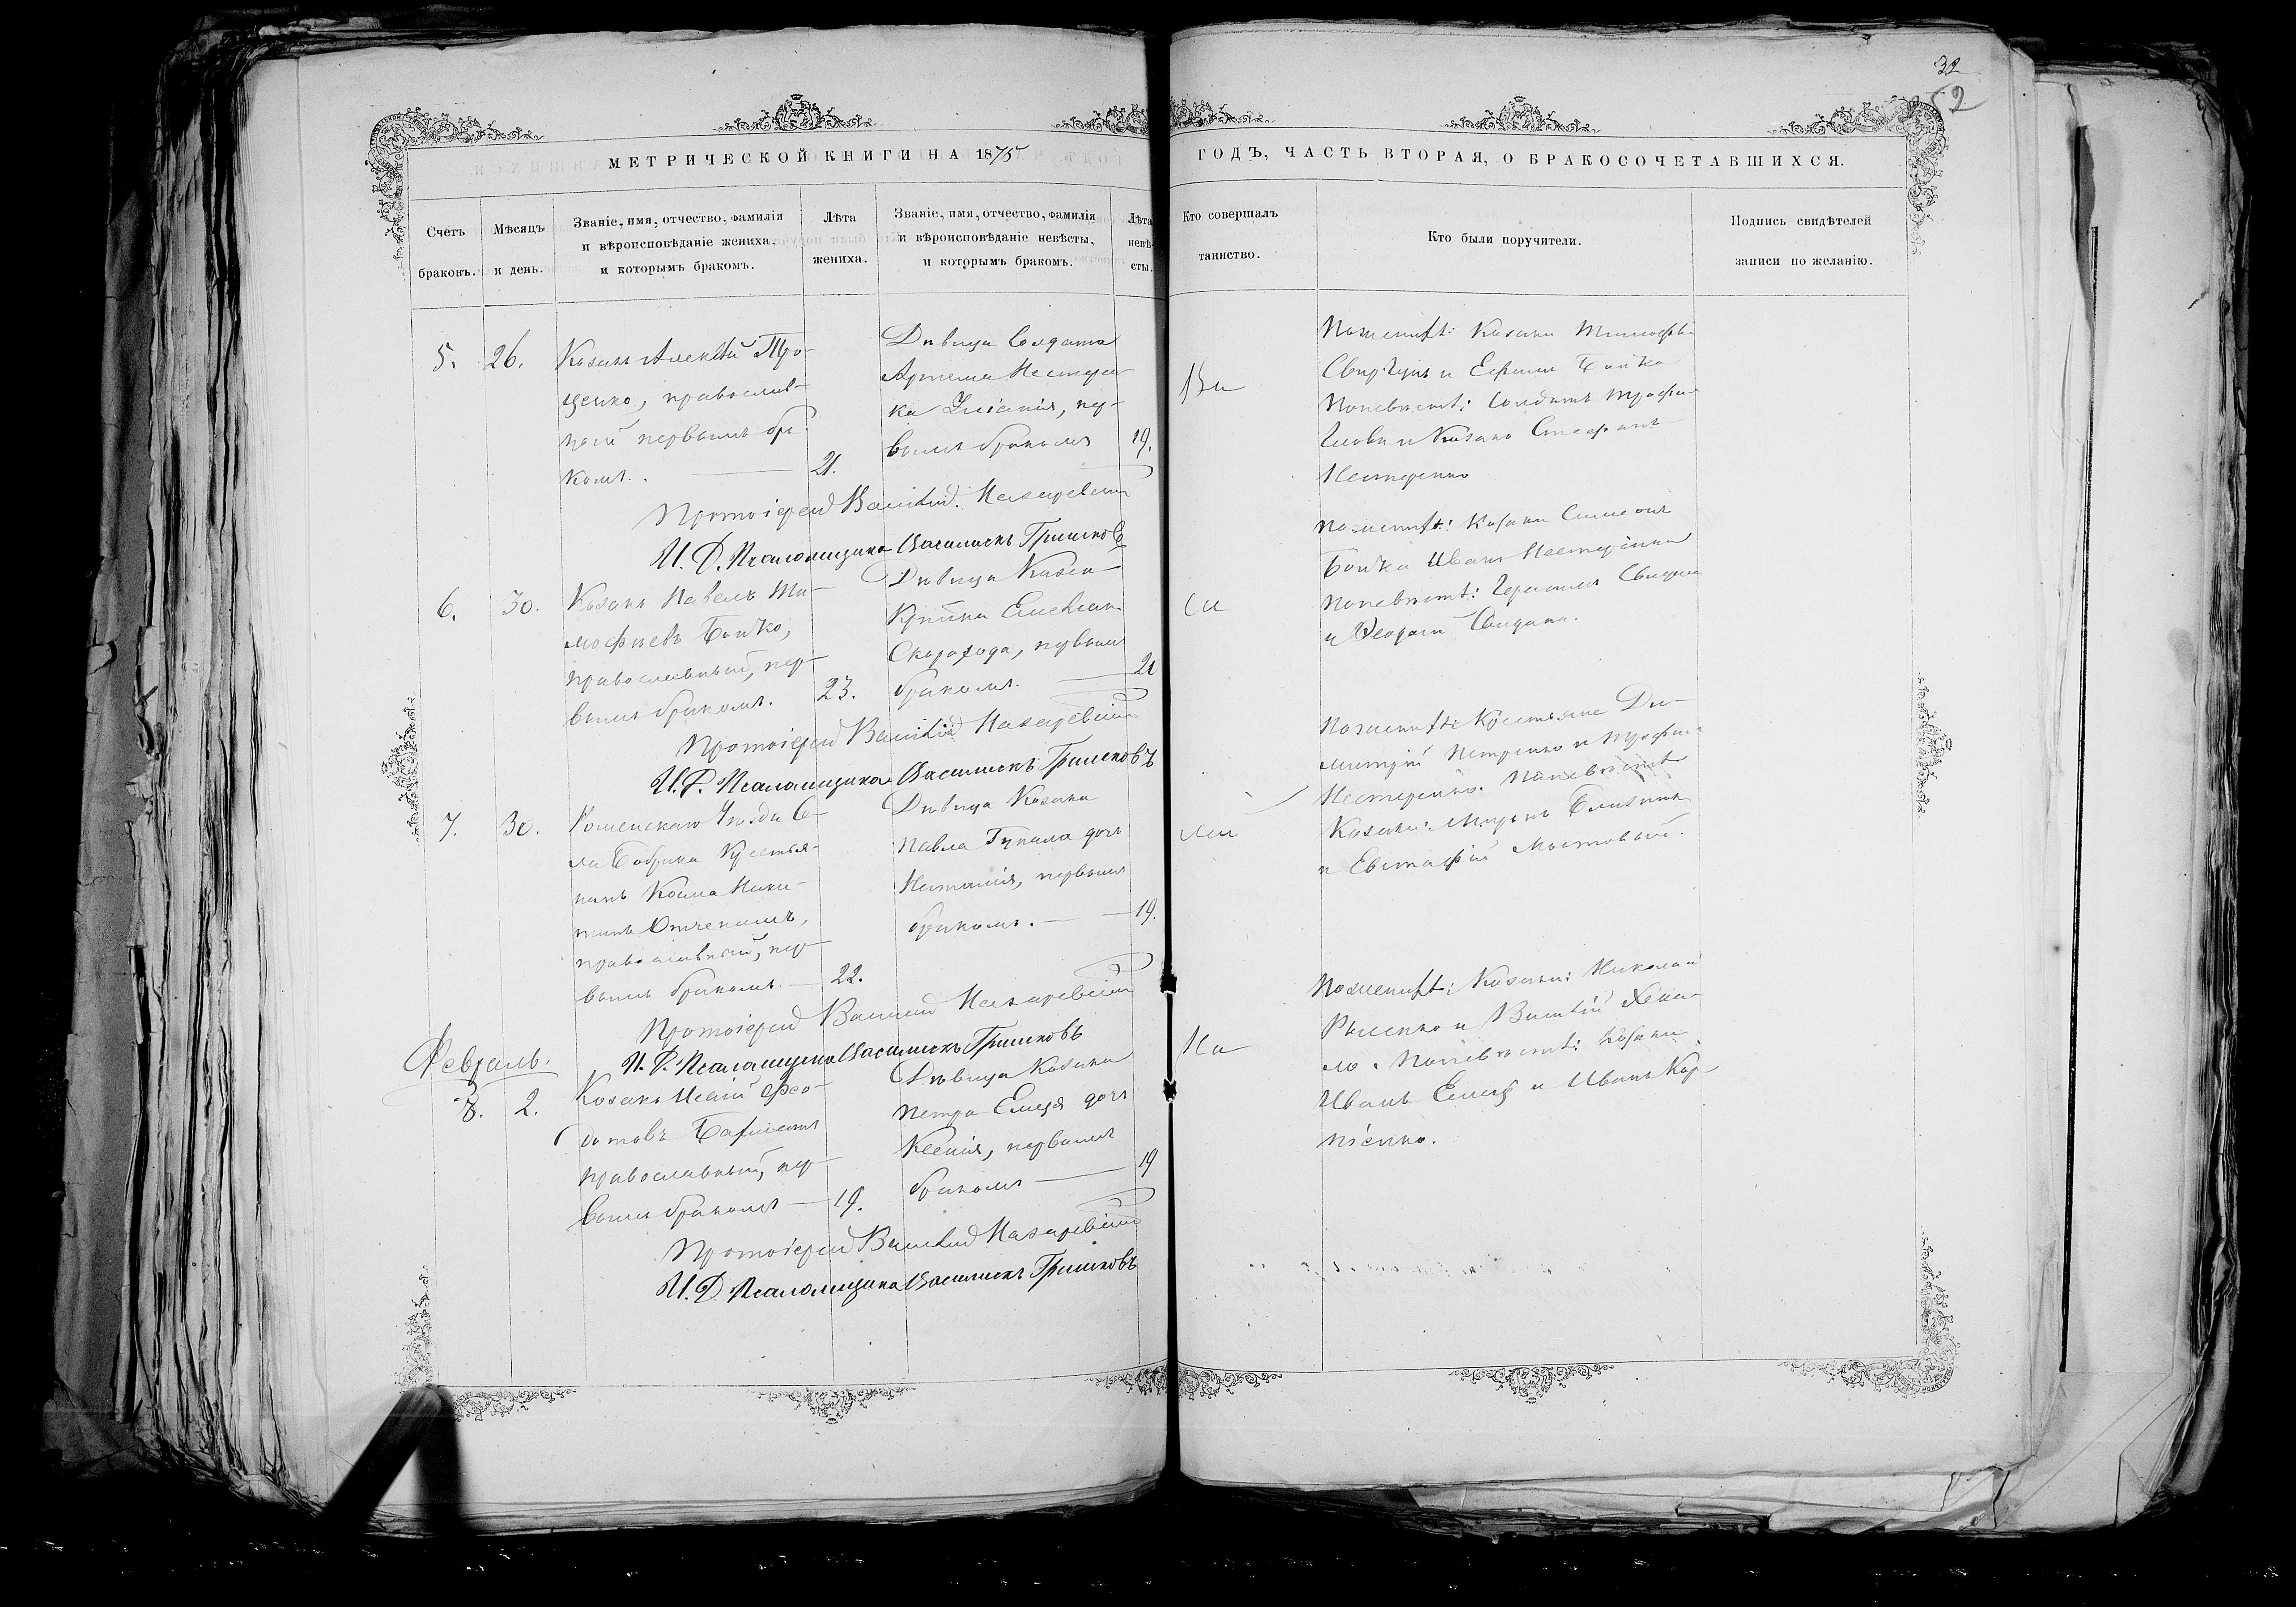 32
52
МЕТРИЧЕСКОЙ КНИГИ НА 1875
ГОДЪ, ЧАСТЬ ВТОРАЯ, О БРАКОСОЧЕТАВШИХСЯ.
Счетъ браковъ.
Мѣсяцъ и день.
Званіе, имя, отчество, фамилія
и вѣроисповѣданіе жениха,
и которымъ бракомъ.
Лѣта
жениха.
Званіе, имя, отчество, фамилія
и вѣроисповѣданіе невѣсты,
и которымъ бракомъ.
Лѣта
невѣ-
сты.
Кто совершалъ
таинство.
Кто были поручители.
Подпись свидѣтелей
записи по желанію.
5. 26.
Козакъ Алексѣй Тро-
ценко, православ-
ный первымъ бра-
комъ. 21.
Дѣвица Солдата
Артема Нестерен-
ка, пер-
вымъ бракомъ 19.
Ва
По женихѣ: Козаки Тимофѣй
и Ефимъ Бойко
По невѣстѣ: Солдатъ Трофимъ
и Козакъ Стефанъ
Нестеренко
Протоіерей Василій Назаревскій
И. Д. Псаломщика Василискъ Гришковъ
6. 30.
Козакъ Павелъ Ти-
мофѣевъ Бойко,
православный, пер-
вымъ бракомъ. 23.
Дѣвица Козач-
Скорохода, первымъ
бракомъ. 21
си
По женихѣ: Козаки Симеонъ
Бойко Иванъ Нестеренко
По невѣстѣ: Герасимъ
и Ѳеодоръ
Протоіерей Василій Назаревскій
И. Д. Псаломщика Василискъ Гришковъ
7. 30.
Роменскаго Уѣзда Се-
ла Бобрика Крестья-
нинъ Косма Ники-
тинъ
православный, пер-
вымъ бракомъ 22.
Дѣвица Козака
Павла Гупала дочь
Наталія, первымъ
бракомъ. 19.
лій
По женихѣ: Крестьяне Ди-
митрій Петренко и Трофимъ
Нестеренко. По невѣстѣ
Козаки:
и Евстафій Мостовый.
Протоіерей Василій Назаревскій
И. Д. Псаломщика Василискъ Гришковъ
Февраль.
8. 2.
Козакъ Исаій Ѳео-
дотовъ
православный, пер-
вымъ бракомъ 19.
Дѣвица Козака
Петра Емца дочь
Ксенія, первымъ
бракомъ 19
На
По женихѣ: Козаки: Николай
и Василій
По невѣстѣ: Козаки
Иванъ Емецъ и Иванъ Кар-
піенко.
Протоіерей Василій Назаревскій
И. Д. Псаломщика Василискъ Гришковъ